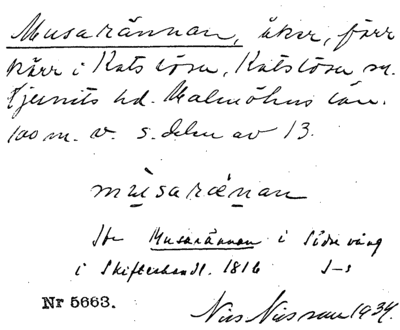 Musarännan, åker, förr
kärr i Katslösa, Katslösa sn.
Ljunits hd. Malmöhus län.
100 m. v. s. delen av 13.
mu̱sarä̱nan
Se Musarännan i Södre vång
i Skifteshandl. 1816 S-s
Nr 5663.
Nils Nilsson 1934.